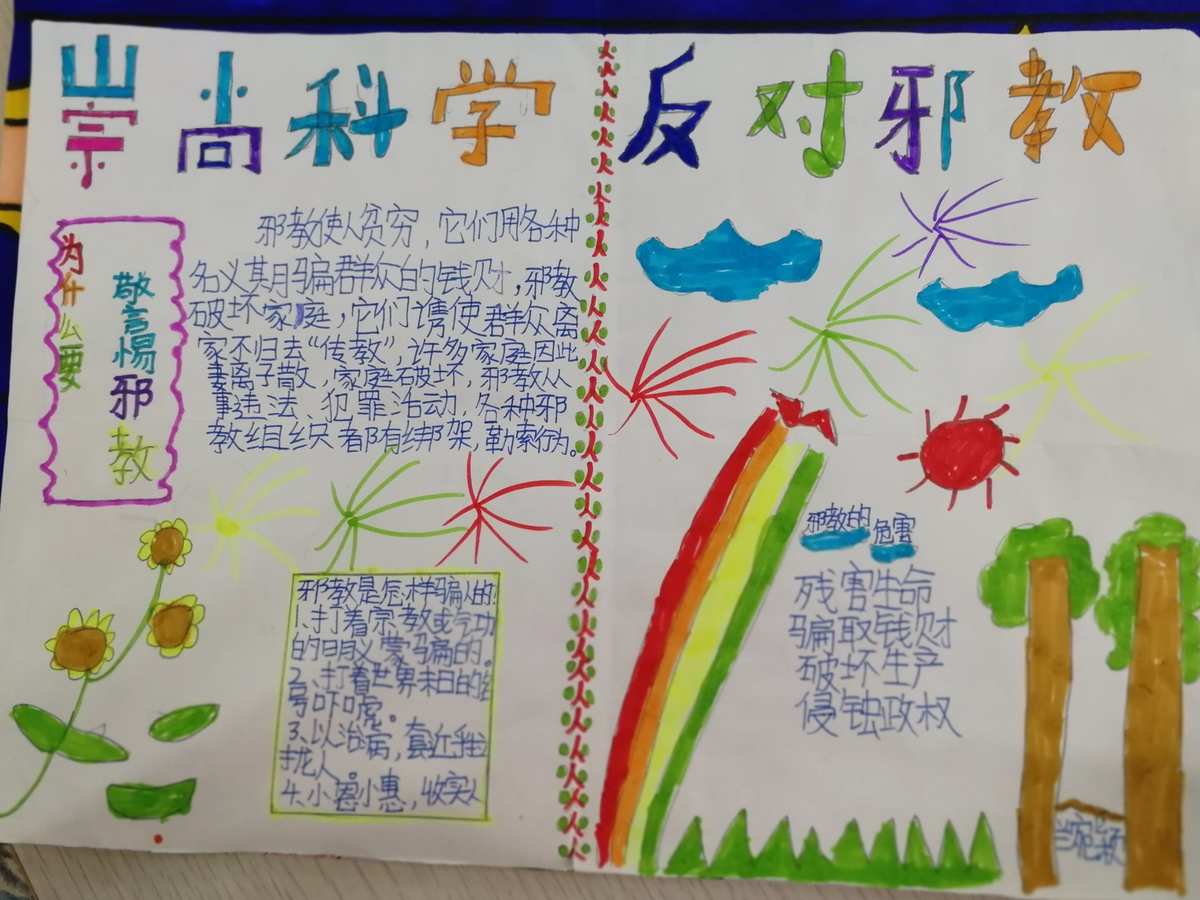 崇尚科学 反对邪教
为什么要
敬言惕邪教
邪教使人贫穷，它们用各种
名义其月骗群众白的钱财，邪教
破坏家庭，它们诱使群众离
家不归去“传教”，许多家庭因此
妻离子散，家庭破坏，邪教从
事违法、犯罪活动，各种邪
教组织都有绑架，勒索行为。
邪教是怎样骗人的：
1、打着宗教或气功
的日月义蒙骗的。
2、打着世界末日的
号吓唬。
3、以治病，套近乎拉
拢人。
4、小恩小惠，收实人
邪教的
危害
残害生命
骗取钱财
破坏生产
侵蚀政权